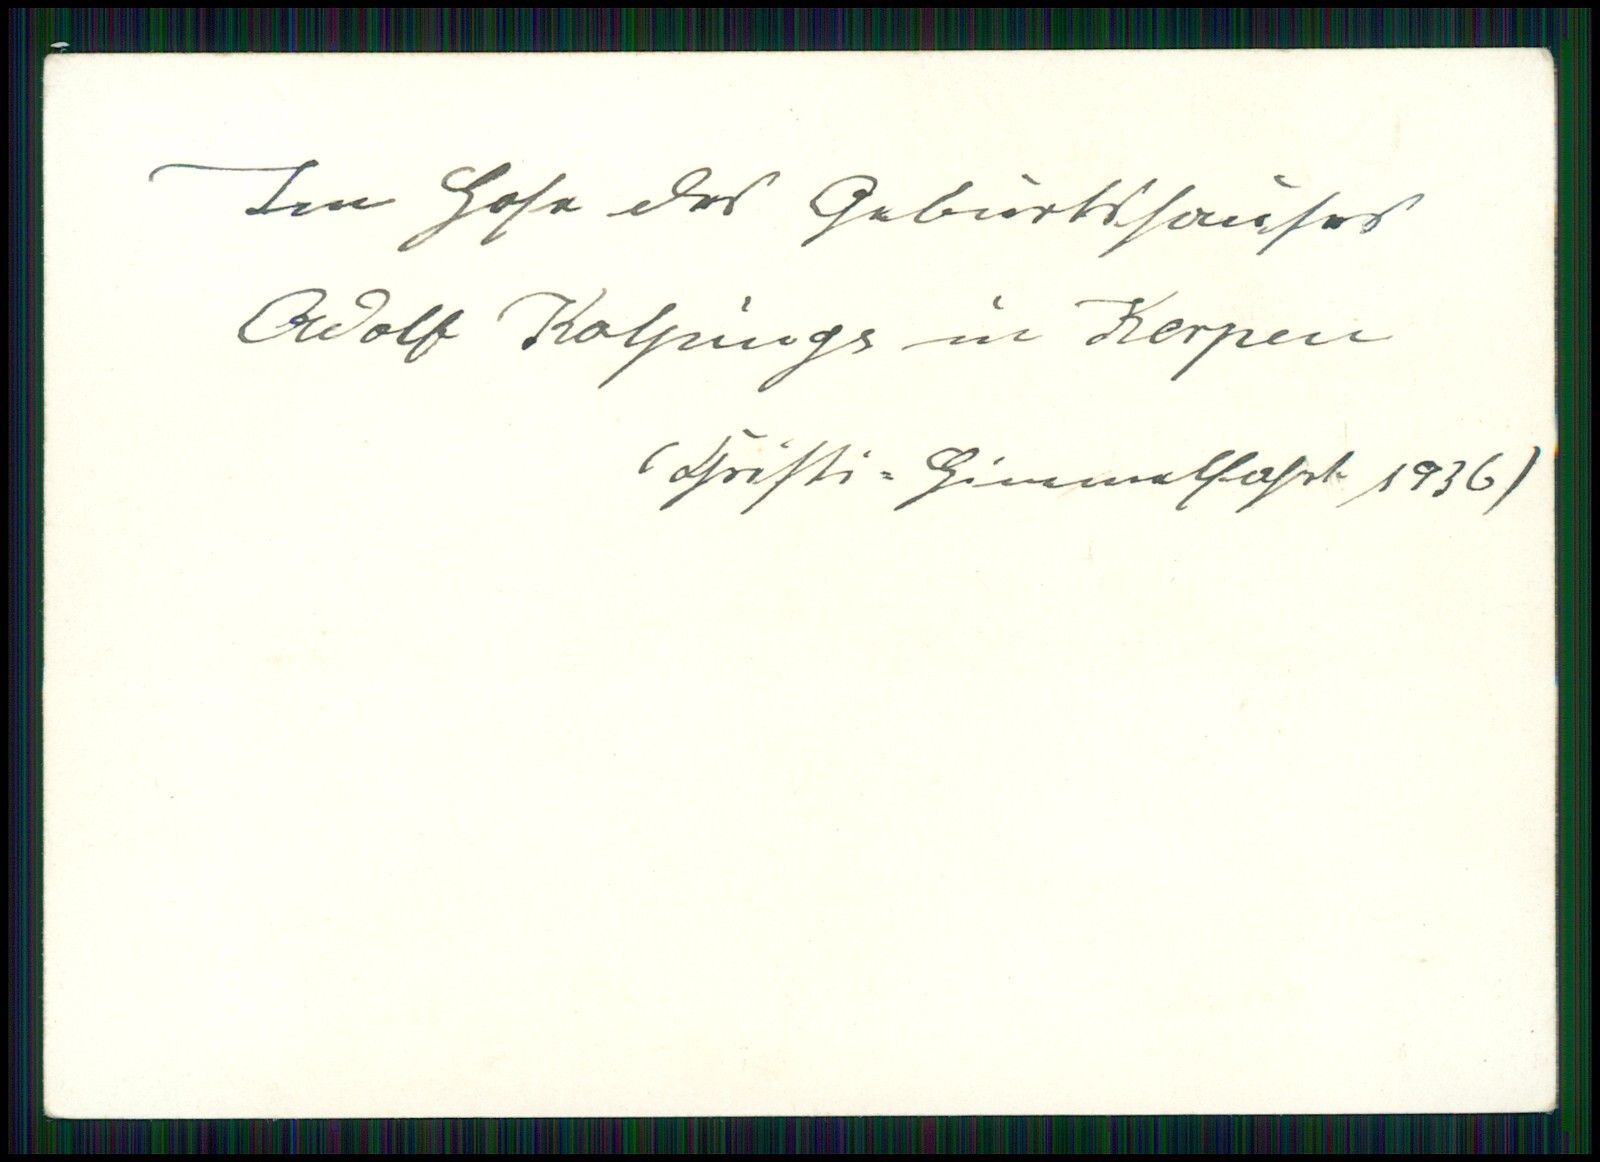 Im Hofe des Geburtshauses
Adolf Kolpings in Kerpen
(Christi-Himmelfahrt 1936)